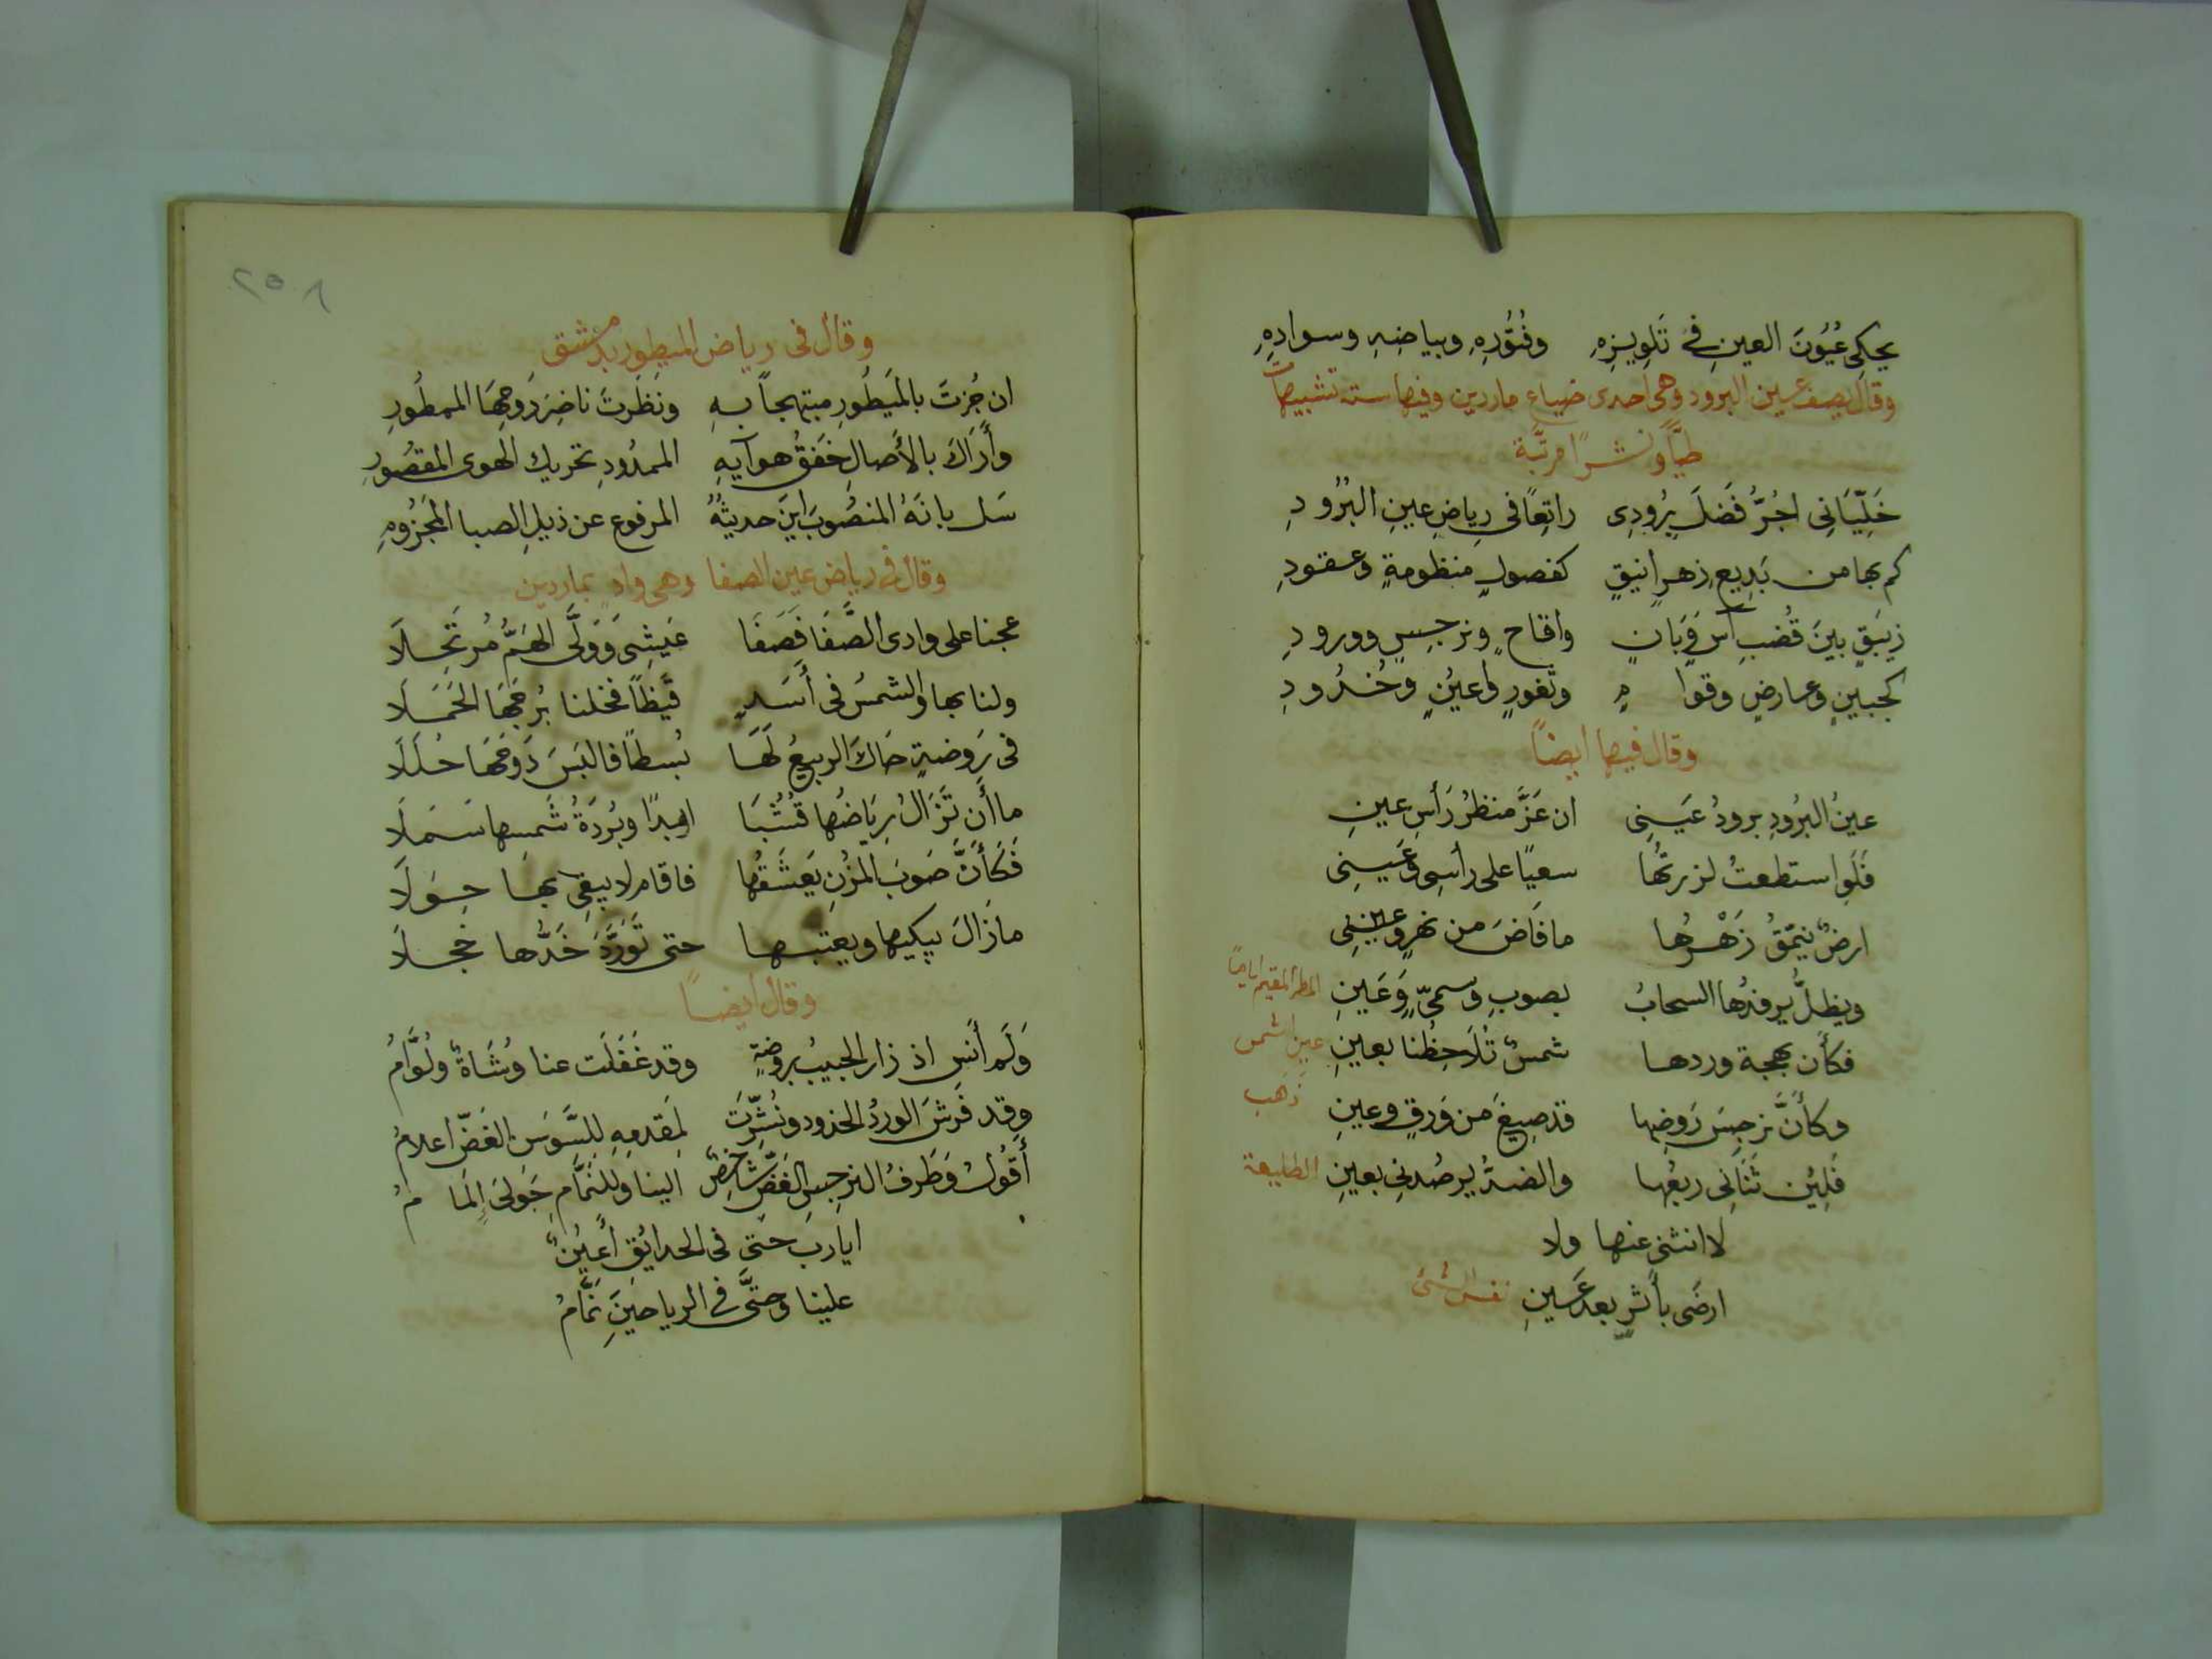 يحكى عُيُونَ العينِ فى تَلوِيزِهِ وفُتُورِهِ وبياضِهِ وسوادِهِ
وقال يصف عين البرود وهى احدى ضياع ماردين وفيها ستة تشبيهات
طيًّا ونشرًا مرتبة
خَلِّيَانِى اجُرُّ فَضلَ بُرُودِى راتِعًا فى رِياضِ عينِ البُرُودِ
كم بها من بَدِيعِ زهرٍ انيقٍ كفصولٍ منظومةٍ وعقودِ
زنبَقٍ بينَ قُضبِ آسٍ وَبَانٍ واقاحٍ ونرجِسٍ وورودِ
كجبينٍ وعارضٍ وقوامٍ وثغورٍ واعيُنٍ وخُدُودِ
وقال فيها ايضاً
عينُ البُرُودِ برودُ عَينِى ان عَزَّ منظرُ رَأسِ عينِ
فَلَوِ استطعتُ لزرتُها سعيًا على رأسِى وعَينِى
ارضٌ ينمّقُ زَهْرُها ما فَاضَ من نهرٍ وعينِ
ويظلُّ يرفدُها السحابُ بصوبِ وسمىٍّ وَعَينِ المطر المقيم اياماً
فكأن بهجة وردها شمسٌ تُلاحِظُنا بعينِ عين الشمس
وكأنَّ نرجِسَ رَوضِها قد صِيغَ من وَرِقٍ وعينِ ذهب
فَلِئِن ثَنَانِى ربعُها والضدُّ يرصُدنِى بعينِ الطليعة
لا انثنى عنها ولا
ارضَى بأثرٍ بعد عَينِ نفس الشئ
٢٥٨
وقال فى رياض الميطور بدمشق
ان جُزتَ بالمَيطُورِ مبتهجاً بهِ ونَظَرتَ ناضِرَ دَوحِهَا الممطُورِ
وأَرَاكَ بالأَصالِ خَفقُ هوآيهِ الممدُودِ تحريك الهوى المقصُورِ
سَل بانَهُ المنصُوبَ اينَ حديثُهُ المرفوع عن ذيلِ الصبا المجزُومِ
وقال فى رياض عين الصفا وهى وادٍ بماردين
عجنا على وادى الصَّفَا فَصَفَا عَيشِى وَوَلَّى الهَمُّ مُرتَحِلَا
ولنا بها والشمسُ فى أَسَدٍ قَيظًا فخلنا بُرجَهَا الحَمَلَا
فى رَوضةٍ حَاكَ الربيعُ لَهَا بُسطاً فالبَسَ دَوحَهَا حُلَلَا
ما أَن تَزَالُ رِيَاضُها قُشُبَا ابدًا وبُردَةُ شَمسِها سَمَلَا
فَكَأَنَّ صَوبَ المُزنِ يَعشَقُها فاقام لا يبغِى بها حِوَلَا
ما زَالَ يبكيها ويعتبها حتى تَوَرَّدَ خَدُّها خَجلَا
وقال أيضاً
وَلَم أنسِ اذ زار الحبيبُ بروضةٍ وقد غَفَلَت عنا وُشَاةٌ ولُوَّامُ
وقد فَرشَ الوردُ الخدود ونُشِّرَت لِمَقدمِهِ لِلسَّوسَنِ الغَضِّ اعلامُ
أَقُولُ وَطَرفُ النرجِسِ الغَضِّ شاخِصٌ الينا وللنَّمَّامِ حَولِىَ إِلمَامُ
ايا رب حتى فى الحدايق أَعيُنٌ
علينا وحتَّى فى الرياحينِ نَمَّامُ